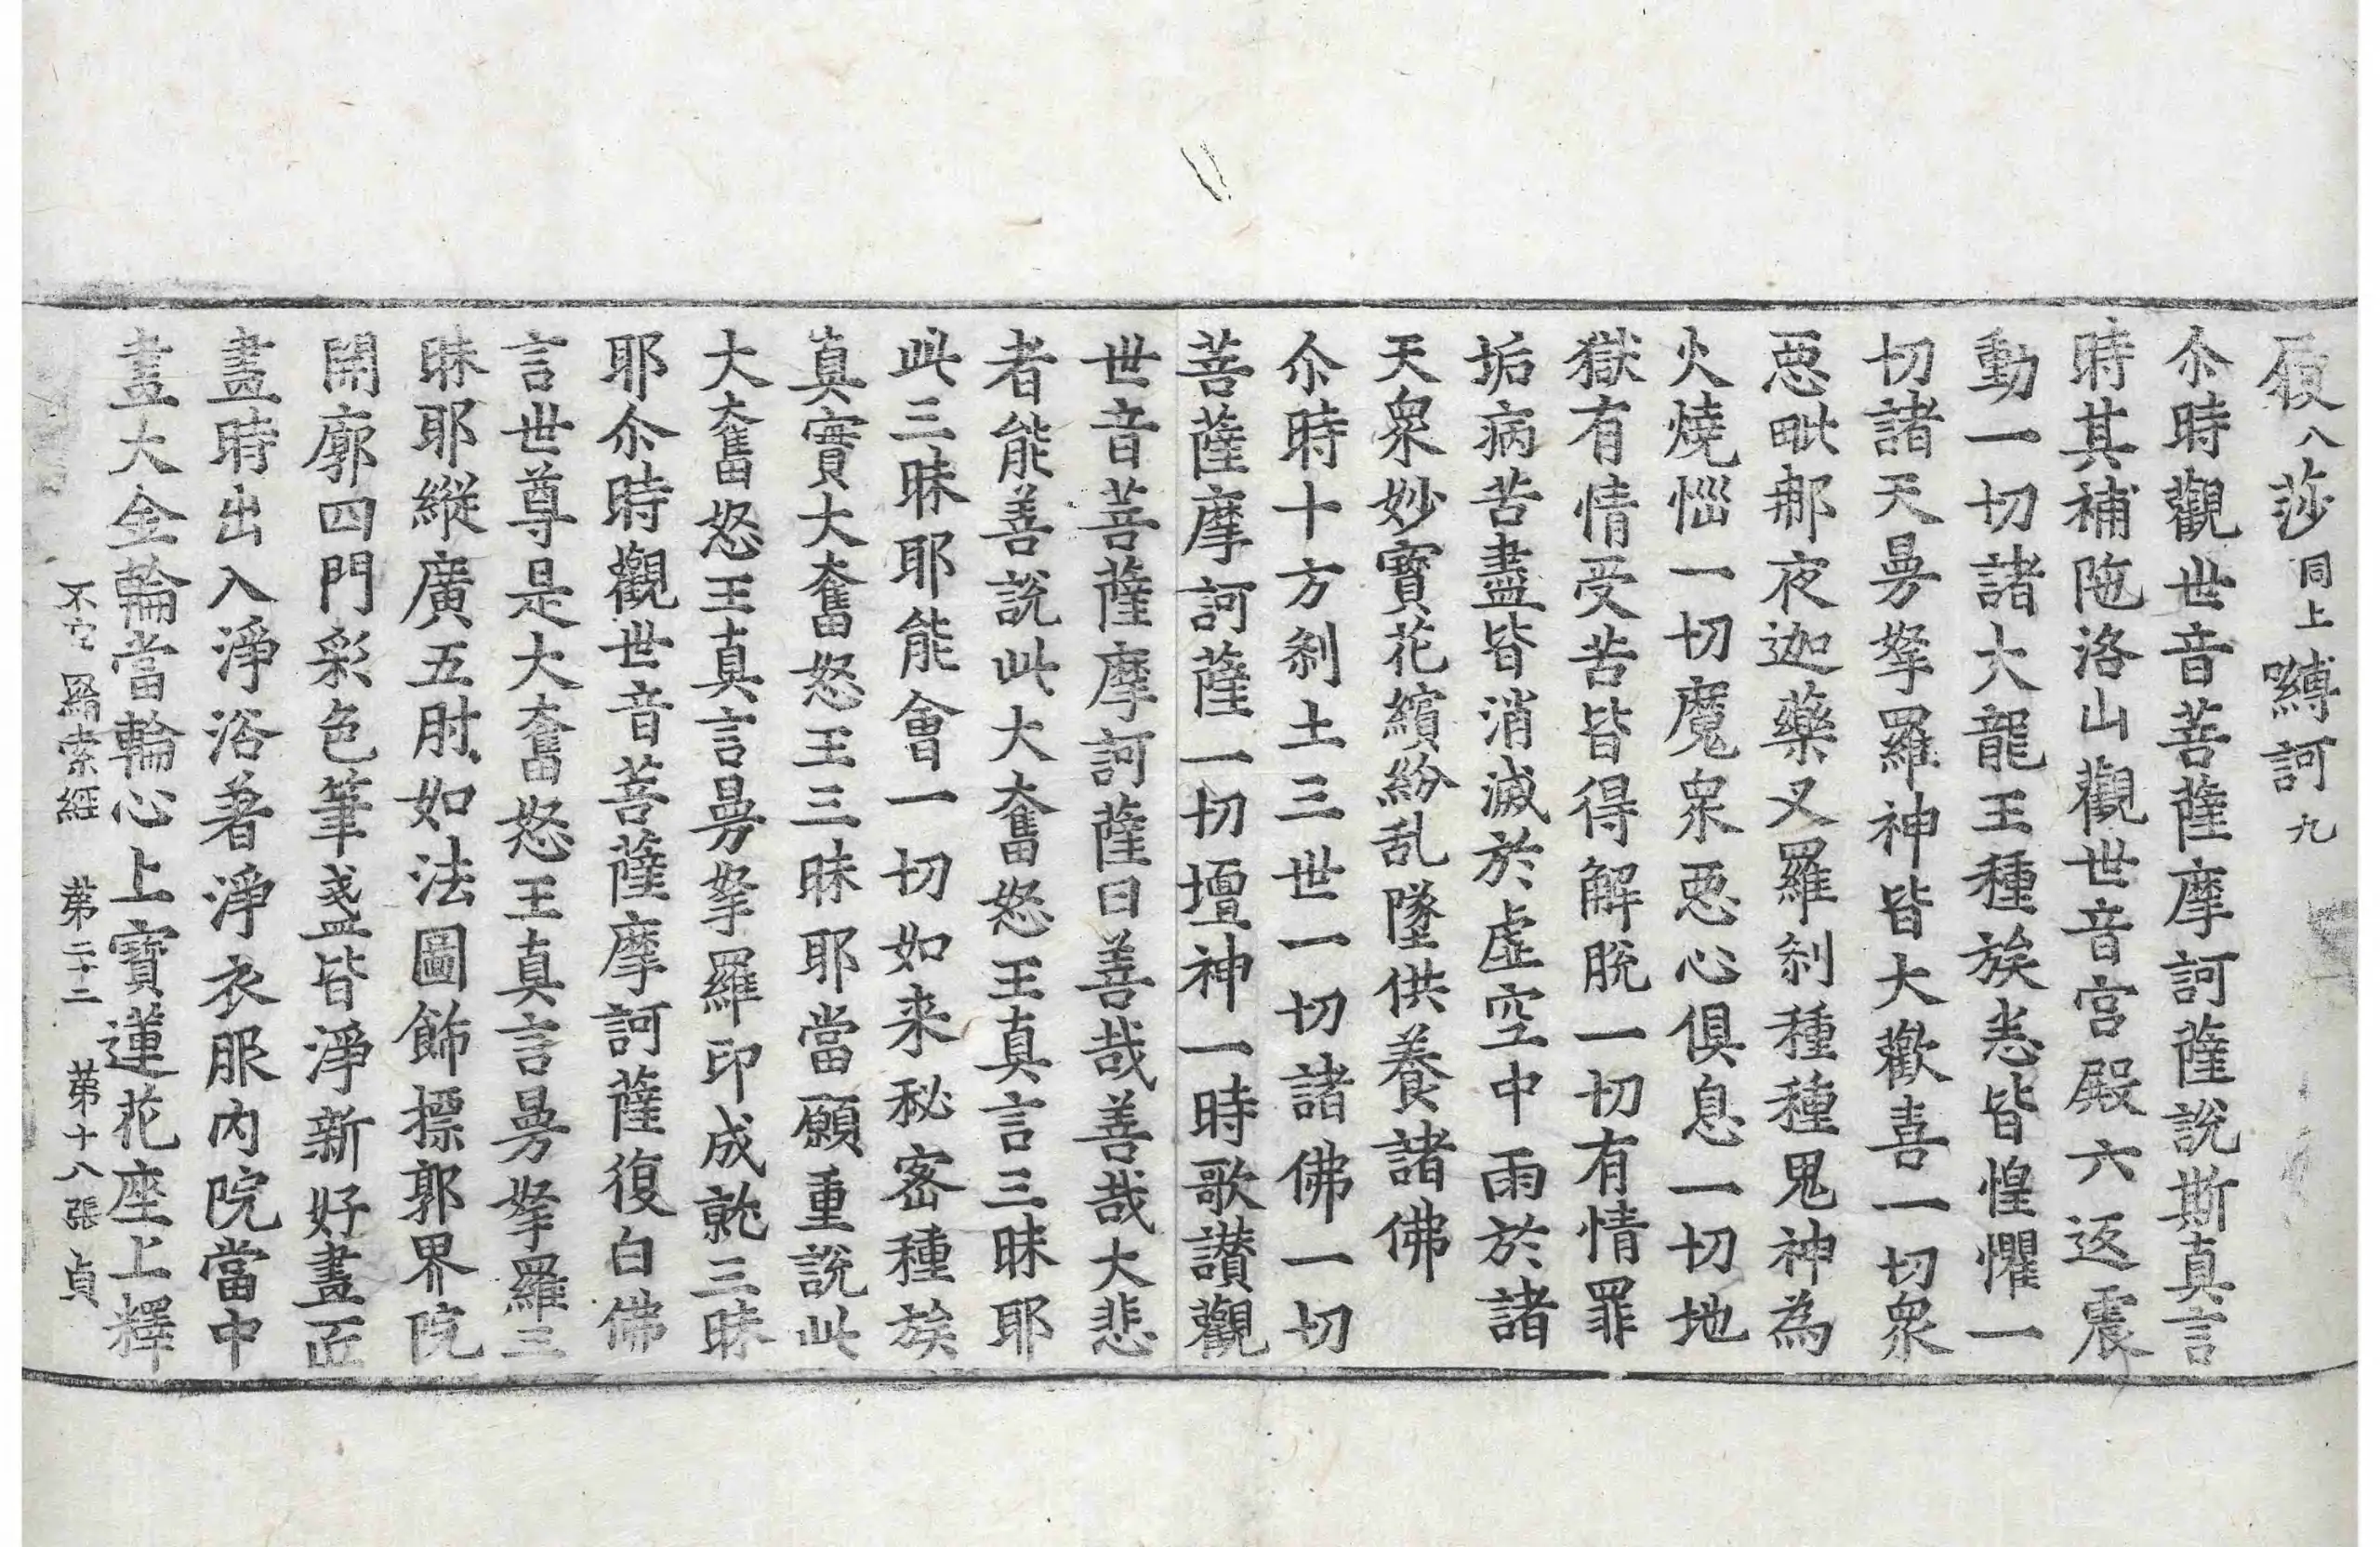 𩕳八莎同上嚩訶九
尒時觀世音菩薩摩訶薩說斯真言
時其補陁洛山觀世音宮殿六返震
動一切諸大龍王種族恙皆惶懼一
切諸天曼拏羅神皆大歡喜一切衆
惡毗那夜迦藥叉羅剎種種鬼神為
火燒惱一切魔衆惡心俱息一切地
獄有情受苦皆得解脫一切有情罪
垢病苦盡皆消滅於虛空中雨於諸
天衆妙寶花繽紛乱墜供養諸佛
尒時十方剎土三世一切諸佛一切
菩薩摩訶薩一切壇神一時歌讚觀
世音菩薩摩訶薩曰善哉善哉大悲
者能善說此大奮怒王真言三昧耶
此三昧耶能會一切如来秘密種族
真實大奮怒王三昧耶當願重說此
大奮怒王真言曼拏羅印成就三昧
耶尒時觀世音菩薩摩訶薩復白佛
言世尊是大奮怒王真言曼拏羅三
昧耶縱廣五肘如法圖飾摽郭界院
開廓四門彩色筆盞皆淨新好畫匠
畫時出入淨浴著淨衣服內院當中
畫大金輪當輪心上寶蓮花座上釋
不空羂索經 第二十二 第十八張 貞